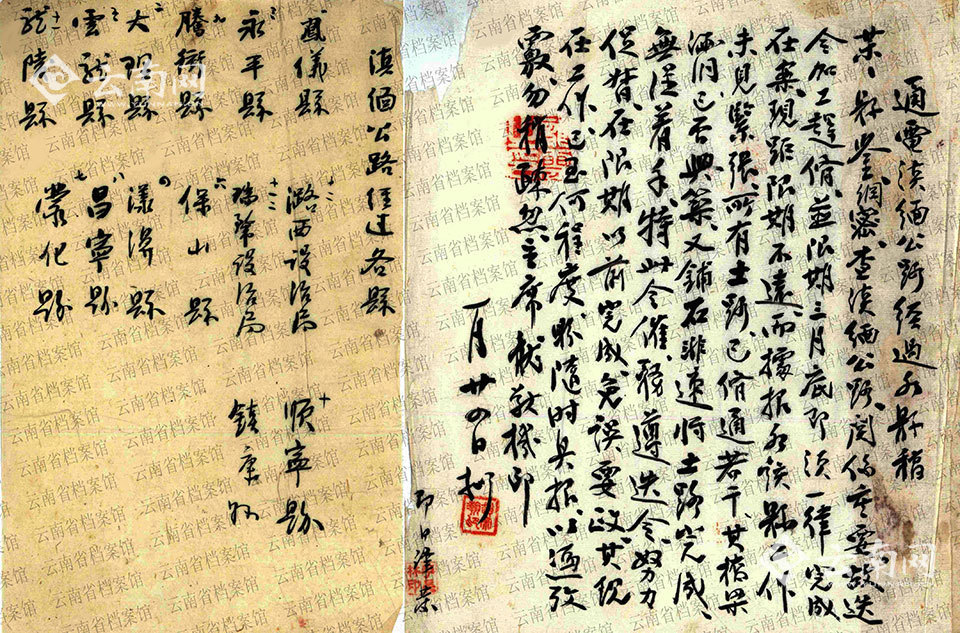 通電滇緬公路經過各縣稿
縣鑒綱密、查滇緬公路、関係重要、迭
令加工趕修、並限期三月底即須一律完成
在案、現距限期不遠、而據報各該縣工作
未見緊張、所有土路、已修通若干、其橋梁
涵洞、已否興築、又鋪石非速將土路完成、
無從着手、特此令催、務遵迭令、努力
促督、在限期以前完成、免誤要政、其現
在工作、已至何程度、隨時具報、以憑考
覈、勿稍疎忽、主席龍 機印
一月廿四日擬
即日
滇緬公路經過各縣
鳳儀縣 潞西設治局 順寧縣
永平縣 瑞麗設治局 鎮康縣
騰衝縣 保山縣
大理縣 漾濞縣
雲龍縣 昌寧縣
龍陵縣 蒙化縣
云南网
云南网
云南省档案馆